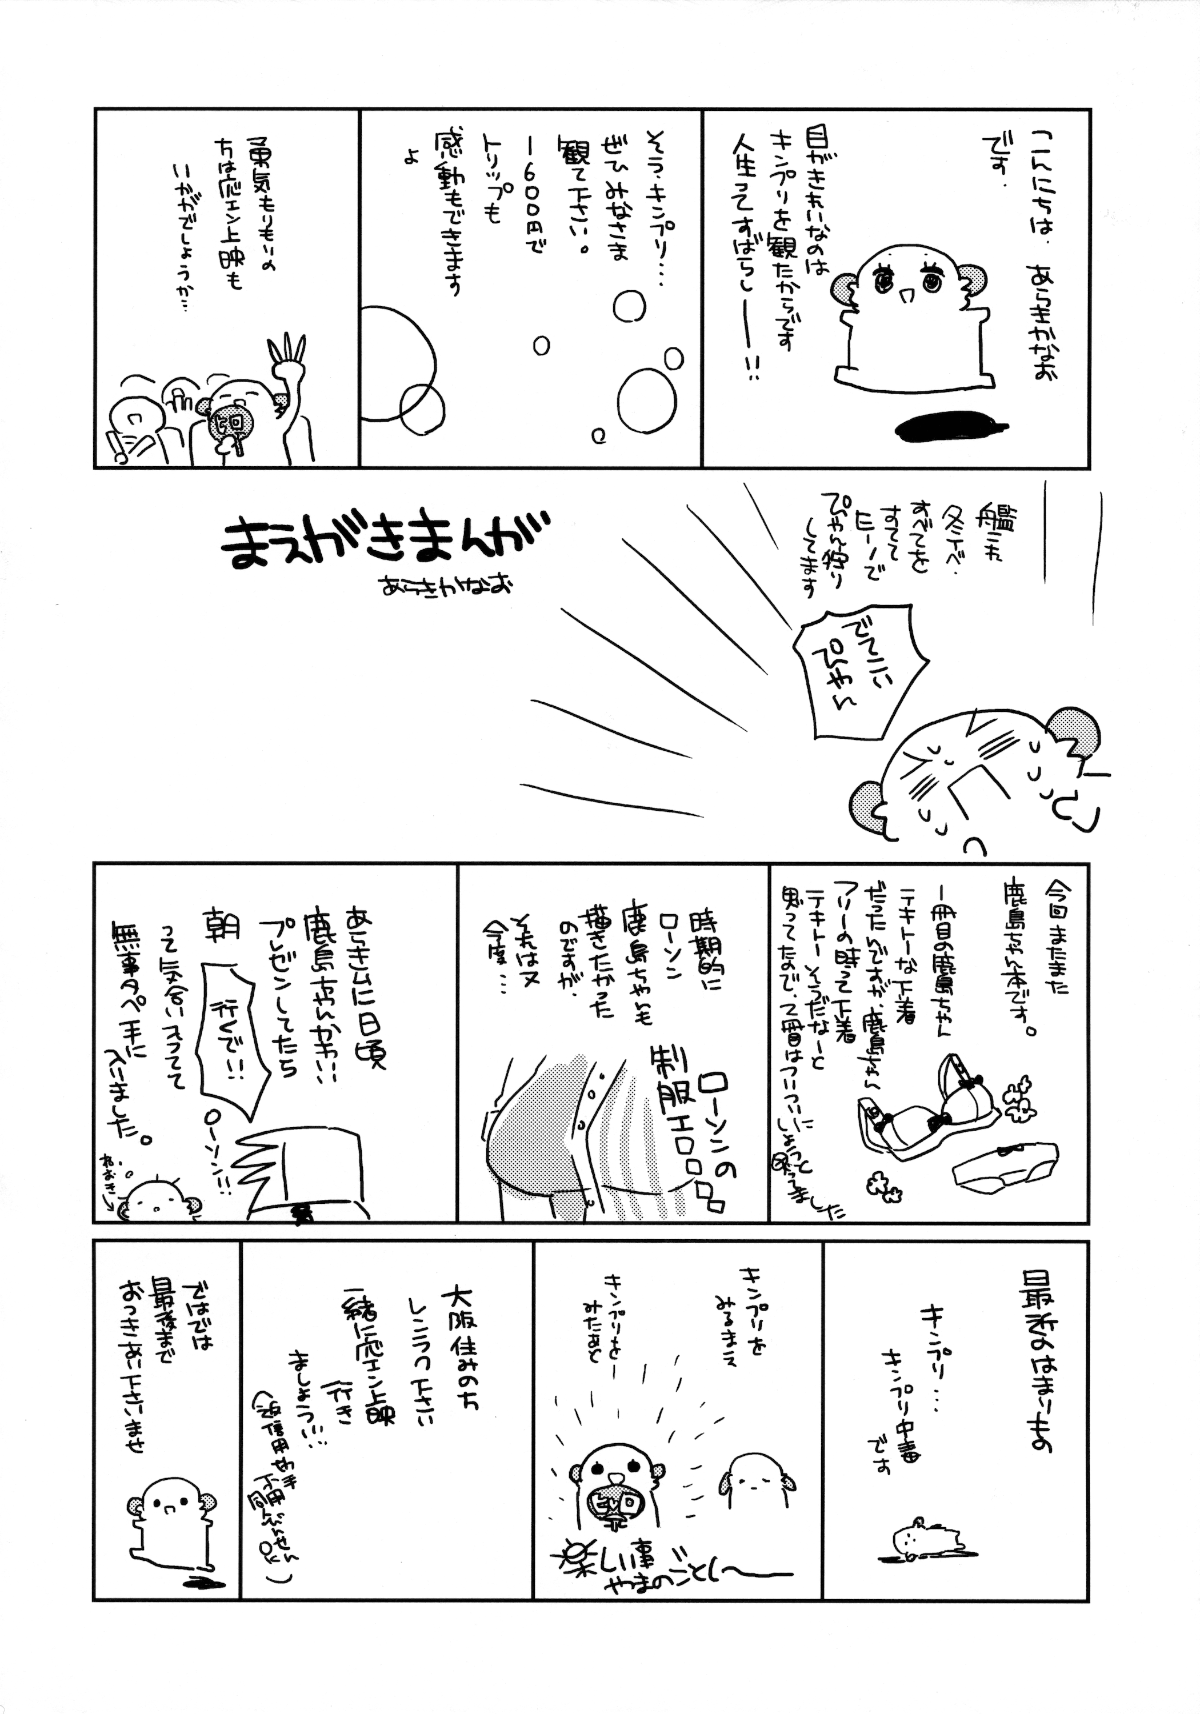 こんにちは、あらきかなお
です。
目がきれいなのは
キンプリを観たからです
人生ってすばらしー!!
そう、キンプリ…
ぜひみなさま
観て下さい。
1600円で
トリップも
感動もできます
よ
勇気もりもりの
方は応エン上映も
いかがでしょうか…
ヒロ
まえがきまんが
あらきかなお
艦これ
冬イベ、
すべてを
すてて
ヒーノで
ぴゃん狩り
してます
でてこい
ぴゃん
今回またまた
鹿島ちゃん本です。
一冊目の鹿島ちゃん
テキトーな下着
だったんですが、鹿島ちゃん
フリーの時って下着
テキトーそうだなーと
思ってたので、2冊目はついついに
しょっと
思ってました
時期的に
ローソン
鹿島ちゃんも
描きたかった
のですが、
それは又
今度…
ローソンの
制服エロロロロ
あらきムに日頃
鹿島ちゃんかわいい
プレゼンしてたら
朝
行くで!!
ローソン!!
って気合い入ってて
無事タペ手に
入りました。
ねおき
最近のはまりもの
キンプリ…
キンプリ中毒
です
キンプリを
みるまえ
キンプリを
みたあと
ヒロ
楽しい事
やまのごとしー
大阪住みの方
レンラク下さい
一緒に応エン上映
行き
ましょう!!…
(返信用切手
不用
同人びんせん
OK)
ではでは
最後まで
おつきあい下さいませ